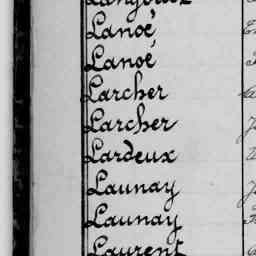 Lanoé
Lanoé
Larcher
Larcher
Lardeux
Launay
Launay
Laurent